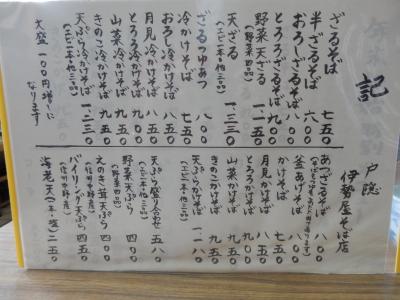 記
ざるそば 七五〇
半ざるそば 六〇〇
おろしざるそば 八五〇
とろろざるそば 九五〇
野菜天ざる 一、一五〇
(野菜四品)
天ざる 一、三三〇
(エビ二本他三品)
ざるつゆあつ 八〇〇
冷かけそば 七五〇
おろし冷かけそば 八五〇
月見冷かけそば 八五〇
とろろ冷かけそば 九五〇
山菜冷かけそば 九五〇
きのこ冷かけそば 九五〇
天ぷら冷かけそば 一、二三〇
(エビ一本他三品)
大盛 一〇〇円増しに
なります
戸隠
伊勢屋そば店
あつざるそば 八〇〇
釜あげそば 八〇〇
かけそば 七五〇
月見かけそば 八五〇
とろろかけそば 九五〇
山菜かけそば 九五〇
きのこかけそば 九五〇
天ぷらかけそば 一、一八〇
(エビ一本他三品)
天ぷら盛り合わせ 五八〇
(エビ一本他三品)
野菜天ぷら 四〇〇
(野菜四品)
えのき茸天ぷら 四五〇
(信州中野産)
バイリング天ぷら 四五〇
(信州中野産)
海老天(一本・塩) 二五〇